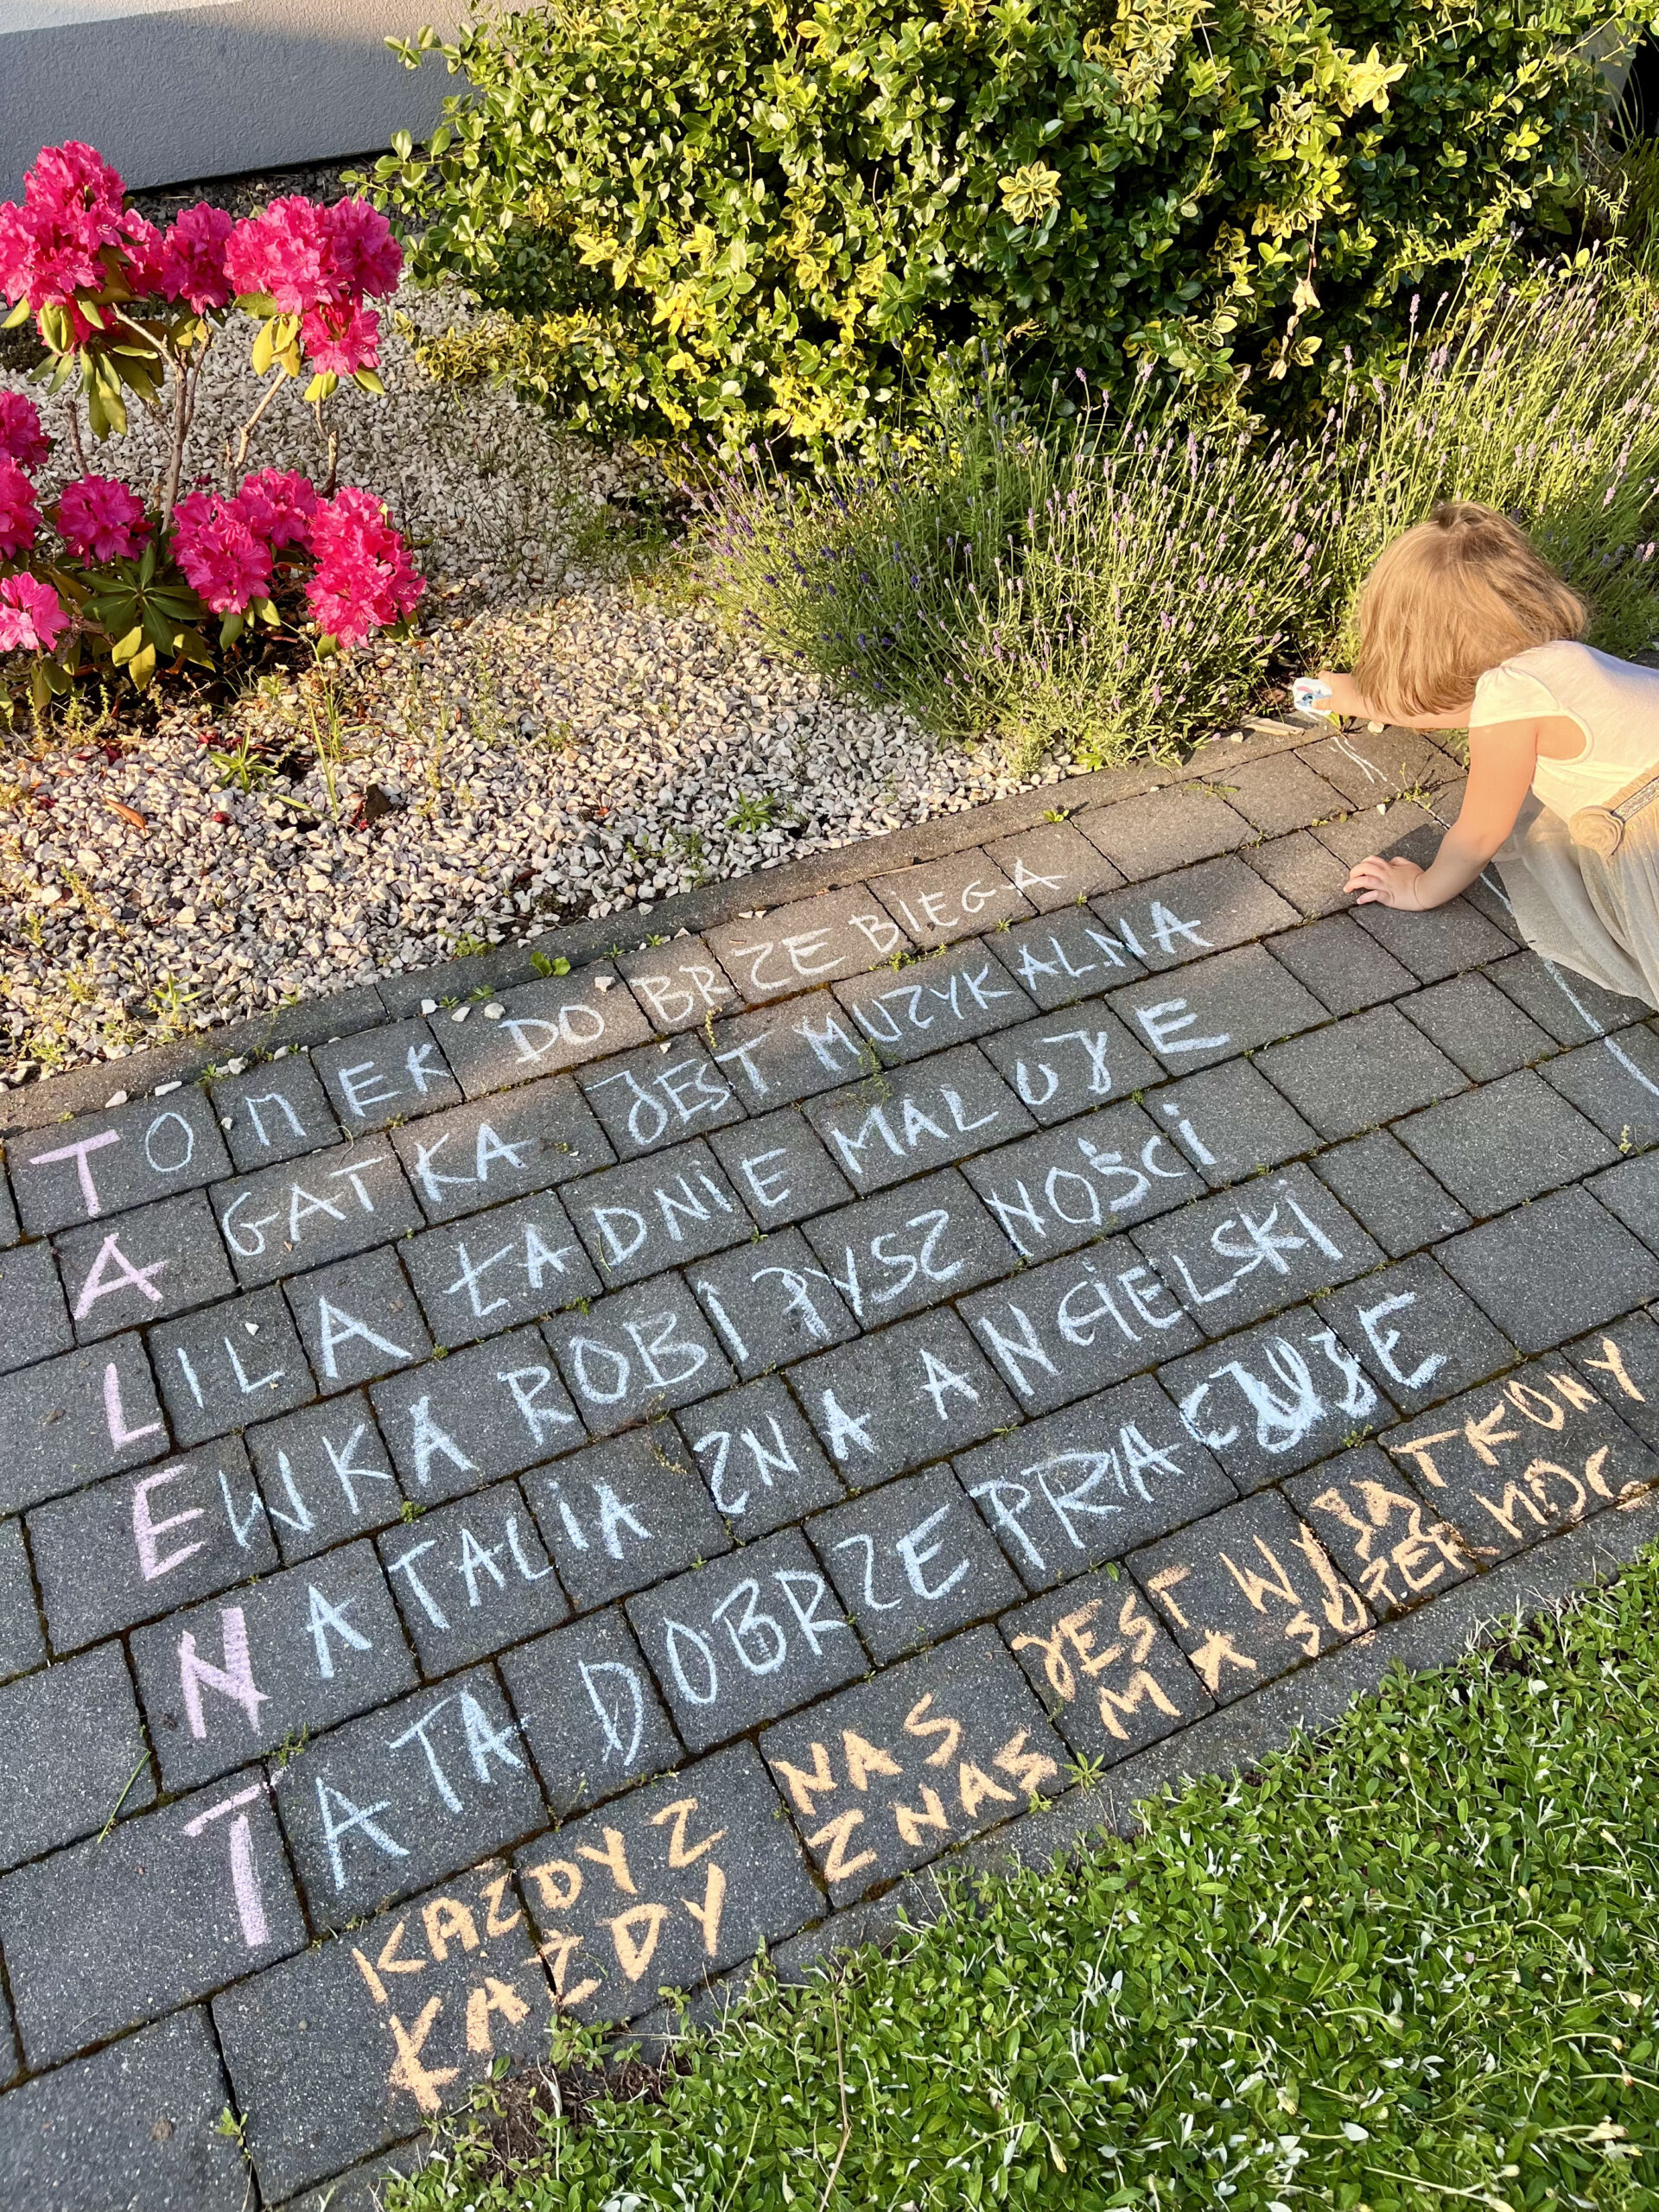 TOMEK DOBRZE BIEGA
AGATKA JEST MUZYKALNA
LILA ŁADNIE MALUJE
EWKA ROBI PYSZNOŚCI
NATALIA ZNA ANGIELSKI
TATA DOBRZE PRACUJE
KAŻDY Z NAS JEST WYJĄTKOWY
KAŻDY Z NAS MA SUPER MOC